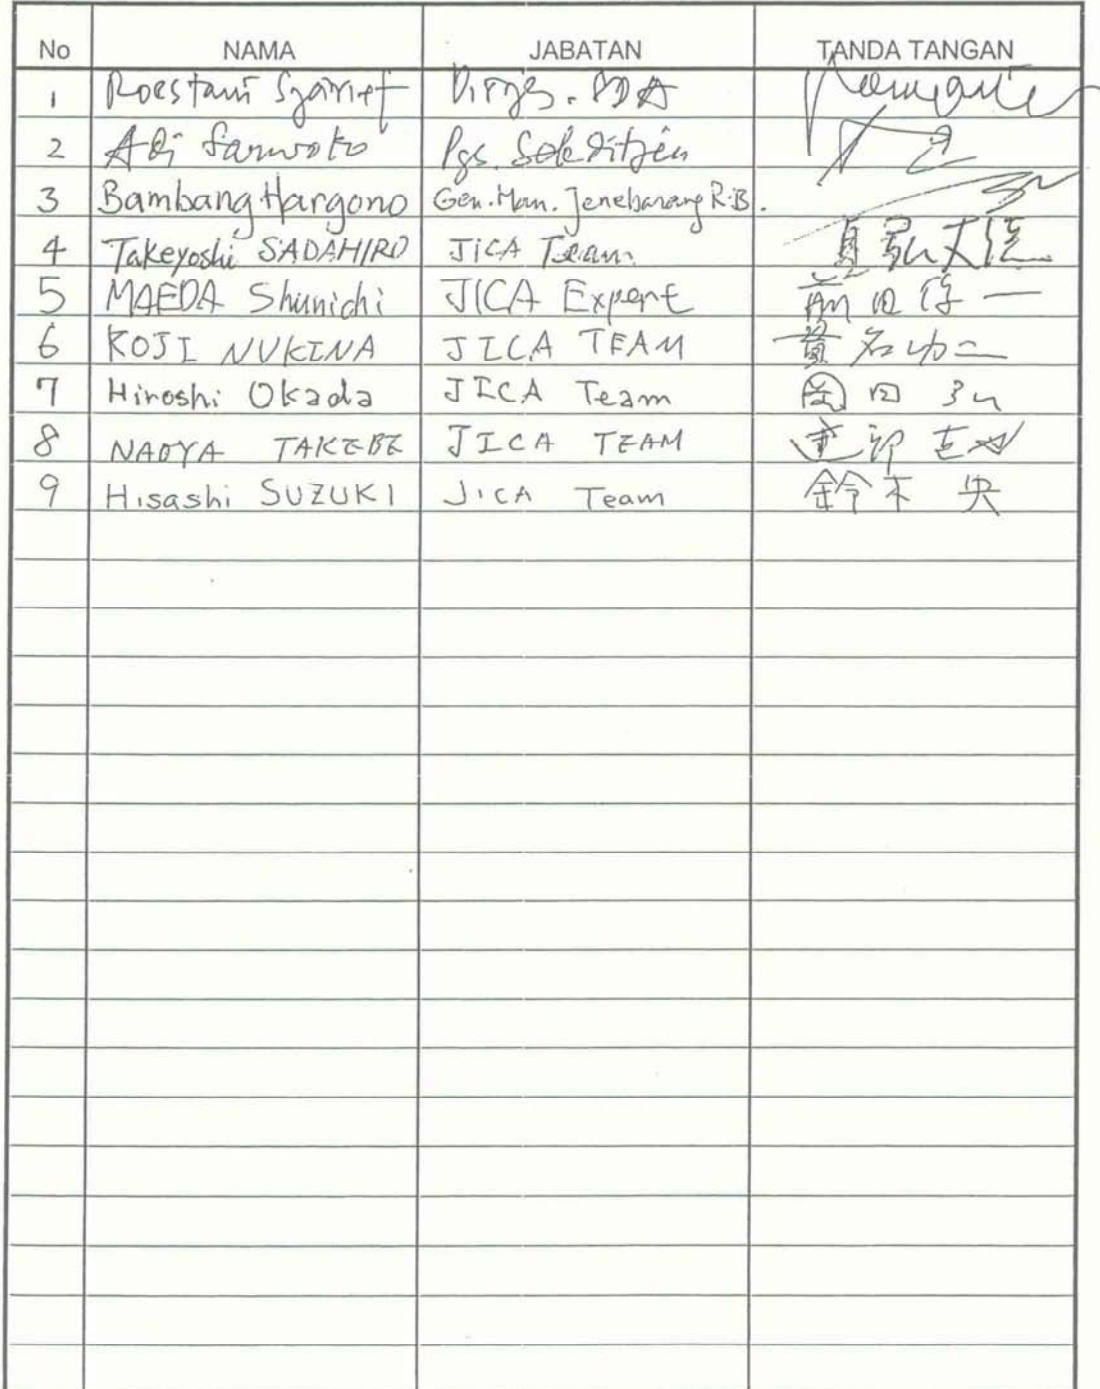 No NAMA JABATAN TANDA TANGAN
1 Roestam Sjarief Dirjen. SDA
2 Adi Sarwoko Pgs. Sekditjen
3 Bambang Hargono Gen. Man. Jeneberang R.B.
4 Takeyoshi SADAHIRO JICA Team 貞弘丈佳
5 MAEDA Shunichi JICA Expert 前田俊一
6 KOJI NUKINA JICA TEAM 貫名功二
7 Hiroshi Okada JICA Team 岡田弘
8 NAOYA TAKEBE JICA TEAM 建部
9 Hisashi SUZUKI JICA Team 鈴木 央